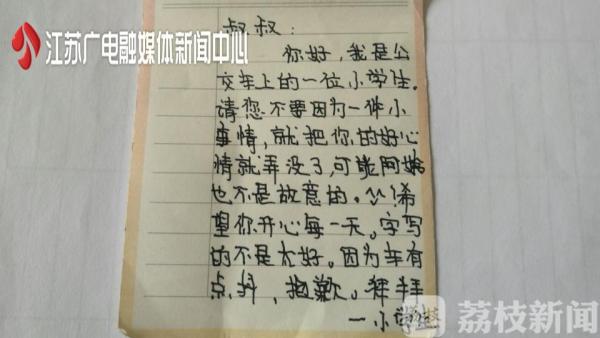 江苏广电融媒体新闻中心
叔叔：
你好，我是公
交车上的一位小学生。
请您不要因为一件小
事情，就把你的好心
情就弄没了，可能阿姨
也不是故意的。^^!希
望你开心每一天。字写
的不是太好。因为车有
点抖，抱歉。
一小学
荔枝新闻